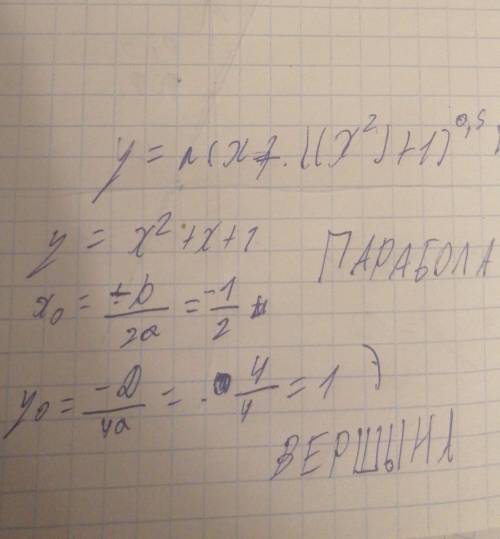 y = n(x+((x²)+1)^0,5
y = x²+x+1 ПАРАБОЛА
x₀ = -b/2a = -1/2
y₀ = -D/4a = 4/4 = 1
ВЕРШЫНА